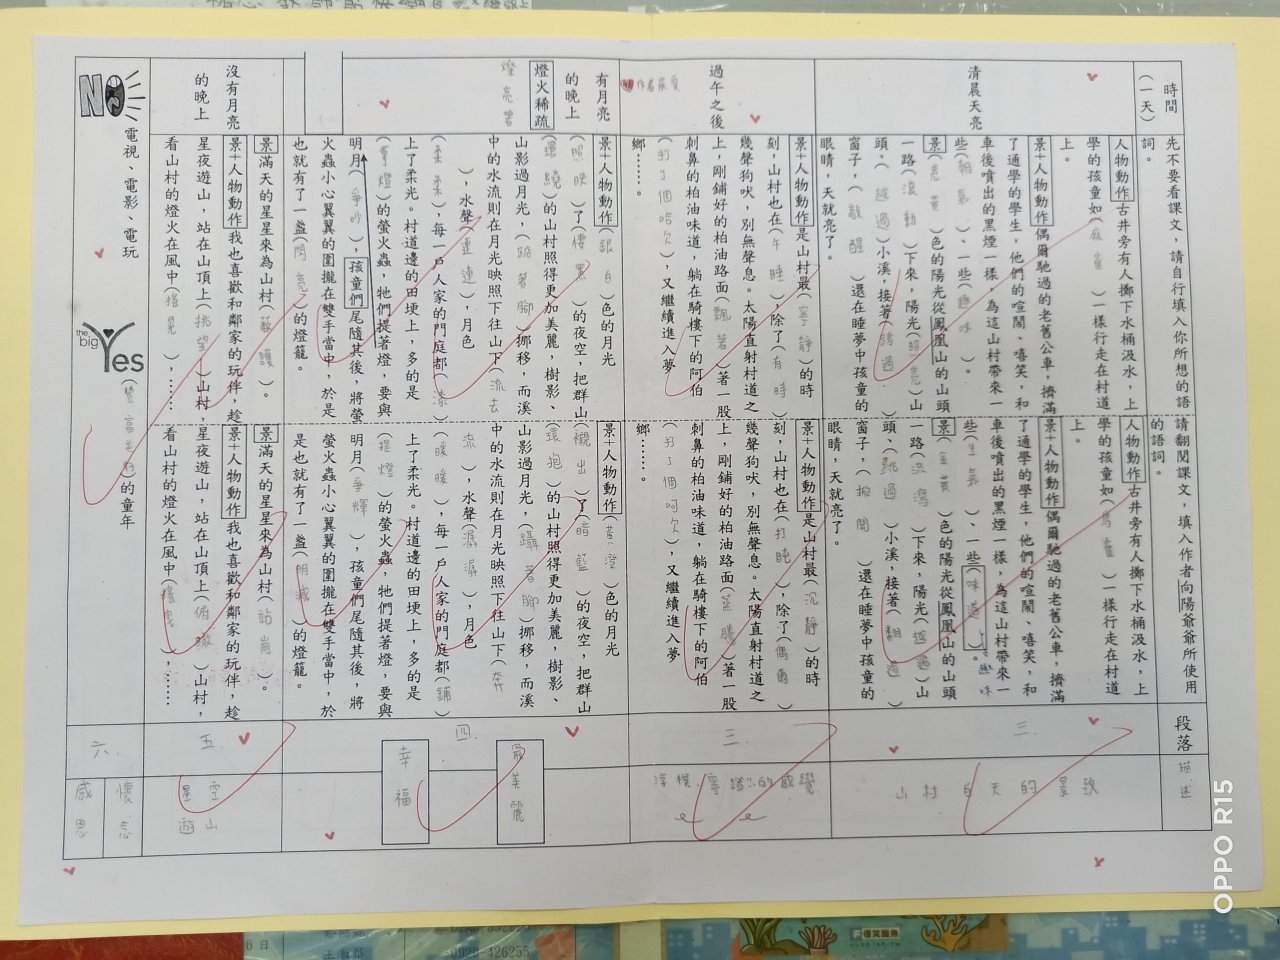 時間
(一天)
先不要看課文，請自行填入你所想的語
詞。
請翻閱課文，填入作者向陽爺爺所使用
的語詞。
段落
描述
清晨天亮
人物動作 古井旁有人擲下水桶汲水，上
學的孩童如(麻雀)一樣行走在村道
上。
景+人物動作 偶爾馳過的老舊公車，擠滿
了通學的學生，他們的喧鬧、嘻笑，和
車後噴出的黑煙一樣，為這山村帶來一
些(朝氣)、一些(趣味)。
景(亮黃)色的陽光從鳳凰山的山頭
一路(滾動)下來，陽光(照亮)山
頭、(越過)小溪，接著(跨過)
窗子，(敲醒)還在睡夢中孩童的
眼睛，天就亮了。
人物動作 古井旁有人擲下水桶汲水，上
學的孩童如(鳥雀)一樣行走在村道
上。
景+人物動作 偶爾馳過的老舊公車，擠滿
了通學的學生，他們的喧鬧、嘻笑，和
車後噴出的黑煙一樣，為這山村帶來一
些(生氣)、一些(味道)。
趣味
景(金黃)色的陽光從鳳凰山的山頭
一路(流瀉)下來，陽光(越過)山
頭、(跳過)小溪，接著(翻過)
窗子，(掀開)還在睡夢中孩童的
眼睛，天就亮了。
三
山村白天的景致
過午之後
景+人物動作 是山村最(寧靜)的時
刻，山村也在(午睡)，除了(有時)
幾聲狗吠，別無聲息。太陽直射村道之
上，剛鋪好的柏油路面(飄著)著一股
刺鼻的柏油味道，躺在騎樓下的阿伯
(打了個哈欠)，又繼續進入夢
鄉……。
景+人物動作 是山村最(沉靜)的時
刻，山村也在(打盹)，除了(偶爾)
幾聲狗吠，別無聲息。太陽直射村道之
上，剛鋪好的柏油路面(蒸騰)著一股
刺鼻的柏油味道，躺在騎樓下的阿伯
(打了個呵欠)，又繼續進入夢
鄉……。
三
淳樸、寧謐的感覺
有月亮
的晚上
燈火稀疏
燦亮著
景+人物動作(銀白)色的月光
(照映)了(漆黑)的夜空，把群山
(環繞)的山村照得更加美麗，樹影、
山影過月光，(踮著腳)挪移，而溪
中的水流則在月光映照下往山下(流去
)，水聲(連連)，月色
(柔柔)，每一戶人家的門庭都(漆)
上了柔光。村道邊的田埂上，多的是
(拿燈)的螢火蟲，牠們提著燈，要與
明月(爭吵)，孩童們尾隨其後，將螢
火蟲小心翼翼的圍攏在雙手當中，於是
也就有了一盞(閃亮)的燈籠。
景+人物動作(黃澄)色的月光
(襯出)了(暗藍)的夜空，把群山
(環抱)的山村照得更加美麗，樹影、
山影過月光，(躡著腳)挪移，而溪
中的水流則在月光映照下往山下(奔
流)，水聲(潺潺)，月色
(暖暖)，每一戶人家的門庭都(鋪)
上了柔光。村道邊的田埂上，多的是
(提燈)的螢火蟲，牠們提著燈，要與
明月(爭輝)，孩童們尾隨其後，將
螢火蟲小心翼翼的圍攏在雙手當中，於
是也就有了一盞(明滅)的燈籠。
四
最美麗
幸福
沒有月亮
的晚上
景 滿天的星星來為山村(守護)。
景+人物動作 我也喜歡和鄰家的玩伴，趁
星夜遊山，站在山頂上(挑望)山村，
看山村的燈火在風中(搖晃)，……
景 滿天的星星來為山村(站崗)。
景+人物動作 我也喜歡和鄰家的玩伴，趁
星夜遊山，站在山頂上(俯瞰)山村，
看山村的燈火在風中(搖曳)，……
五
星空
遊山
NO
電視、電影、電玩
the big Yes
(豐富美好)的童年
六
懷念
感恩
OPPO R15
0920-426255
優笑鱷魚